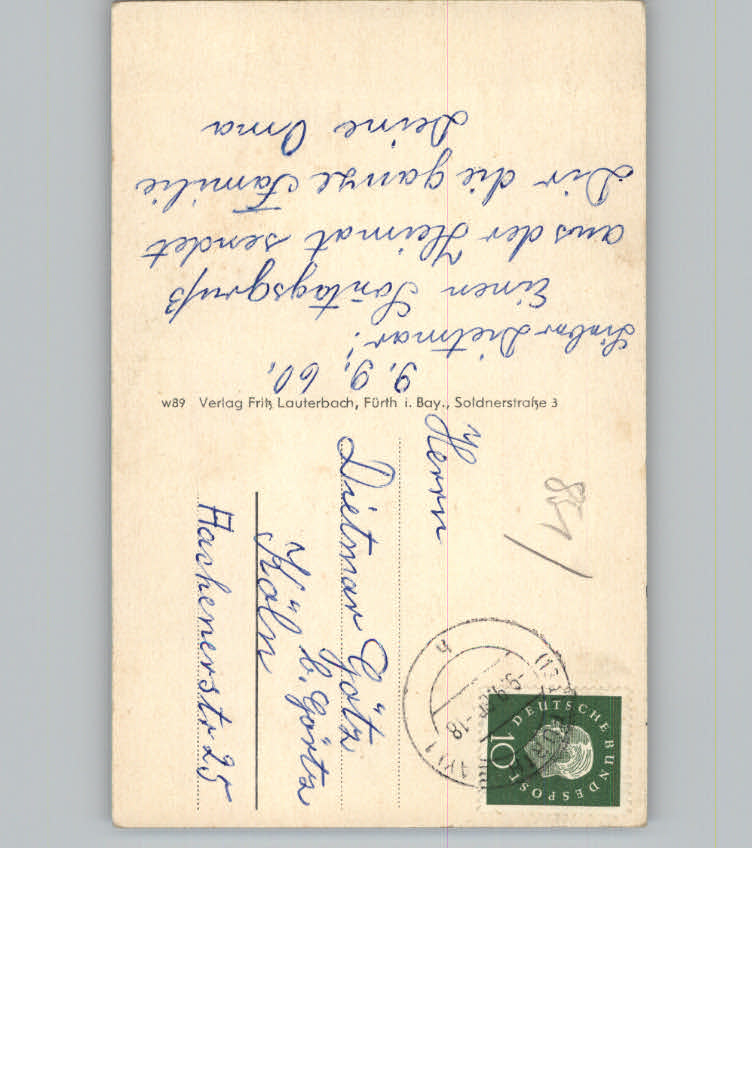 9. 9. 60.
Lieber Dietmar!
Einen Sontagsgruß
aus der Heimat sendet
Dir die ganze Familie
Deine Oma
w89 Verlag Fritz Lauterbach, Fürth i. Bay., Soldnerstraße 3
Herrn
Dietmar Götz
b. Görtz
Köln
Aachenerstr 25
851/
DEUTSCHE BUNDESPOST
10
-18